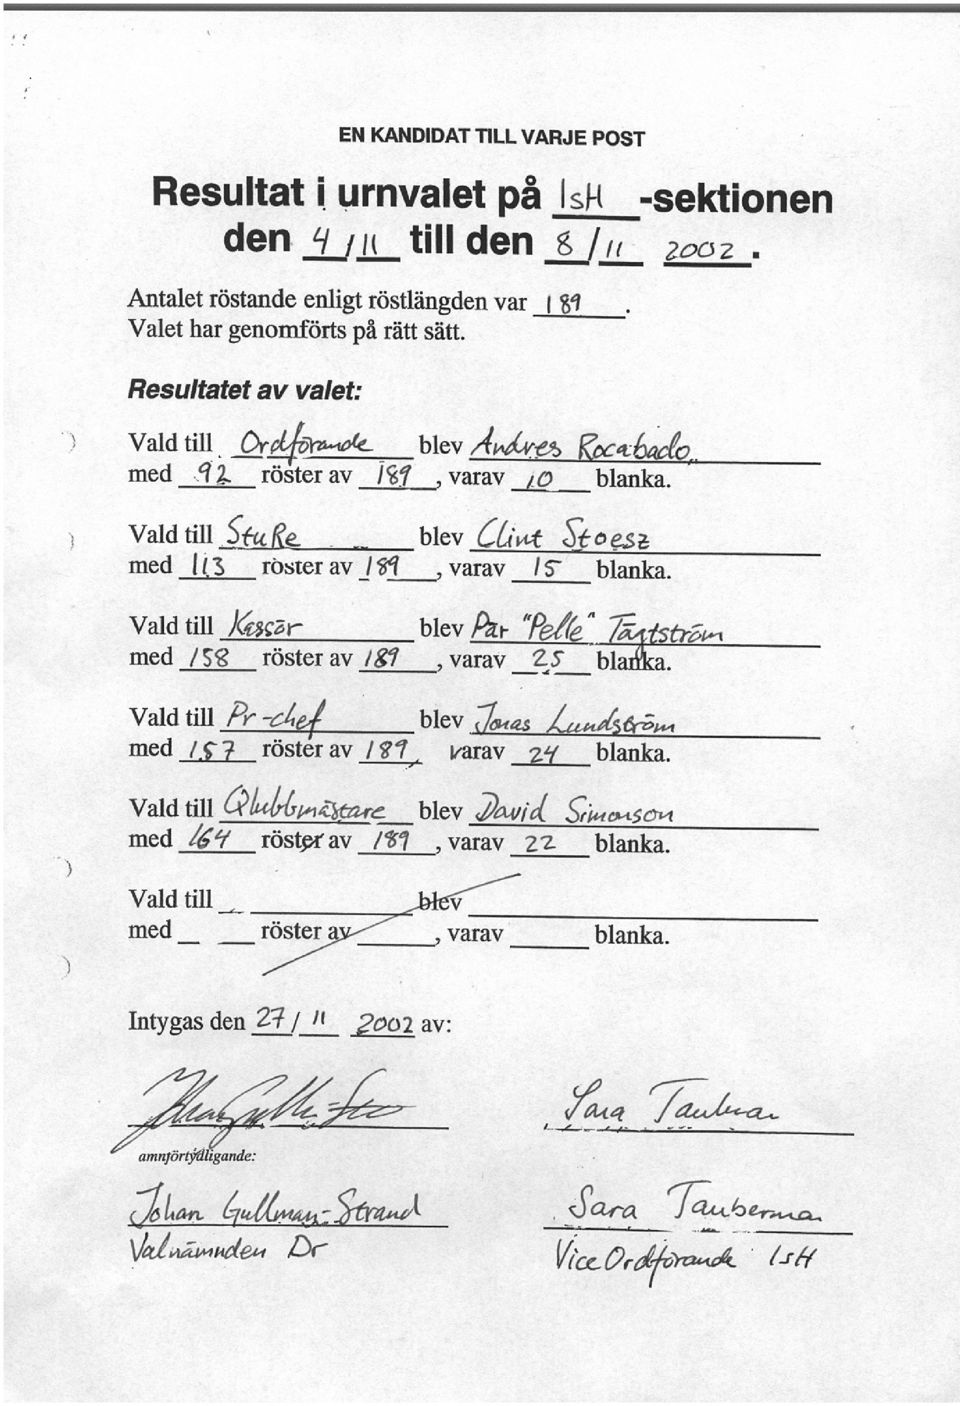 EN KANDIDAT TILL VARJE POST
Resultat i urnvalet på IsH -sektionen
den 4 / 11 till den 8 / 11 2002.
Antalet röstande enligt röstlängden var 189.
Valet har genomförts på rätt sätt.
Resultatet av valet:
Vald till Ordförande blev Andres Rocabado
med 92 röster av 189, varav 10 blanka.
Vald till StuRe blev Clint Stoesz
med 113 röster av 189, varav 15 blanka.
Vald till Kassör blev Pär "Pelle" Tägtström
med 158 röster av 189, varav 25 blanka.
Vald till Pr-chef blev Jonas Lundström
med 157 röster av 189, varav 24 blanka.
Vald till Qlubbmästare blev David Simonson
med 164 röster av 189, varav 22 blanka.
Vald till blev
med röster av, varav blanka.
Intygas den 27 / 11 2002 av:
Sara
amnförtydligande:
Johan Gullman-Strand Sara Tauberman
Valnämnden Dr Vice Ordförande IsH